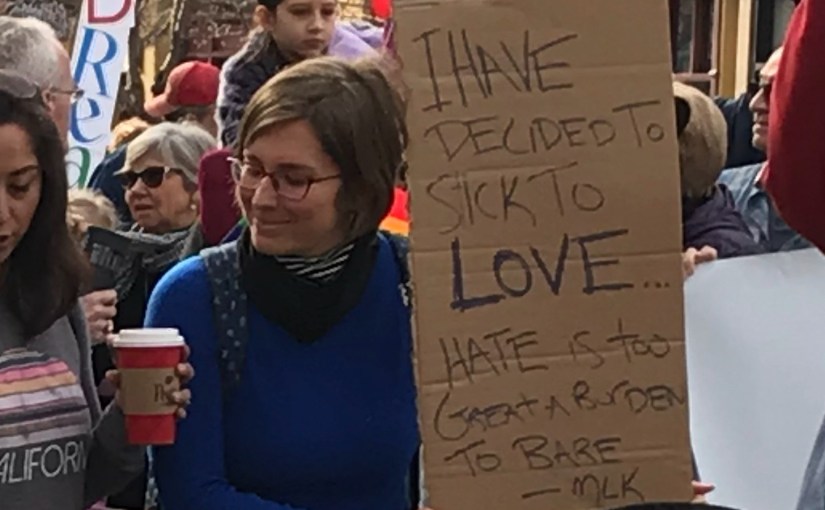 I HAVE
DECIDED TO
SICK TO
LOVE...
HATE IS TOO
GREAT A BURDEN
TO BARE
— MLK
DRea
ALIFORN